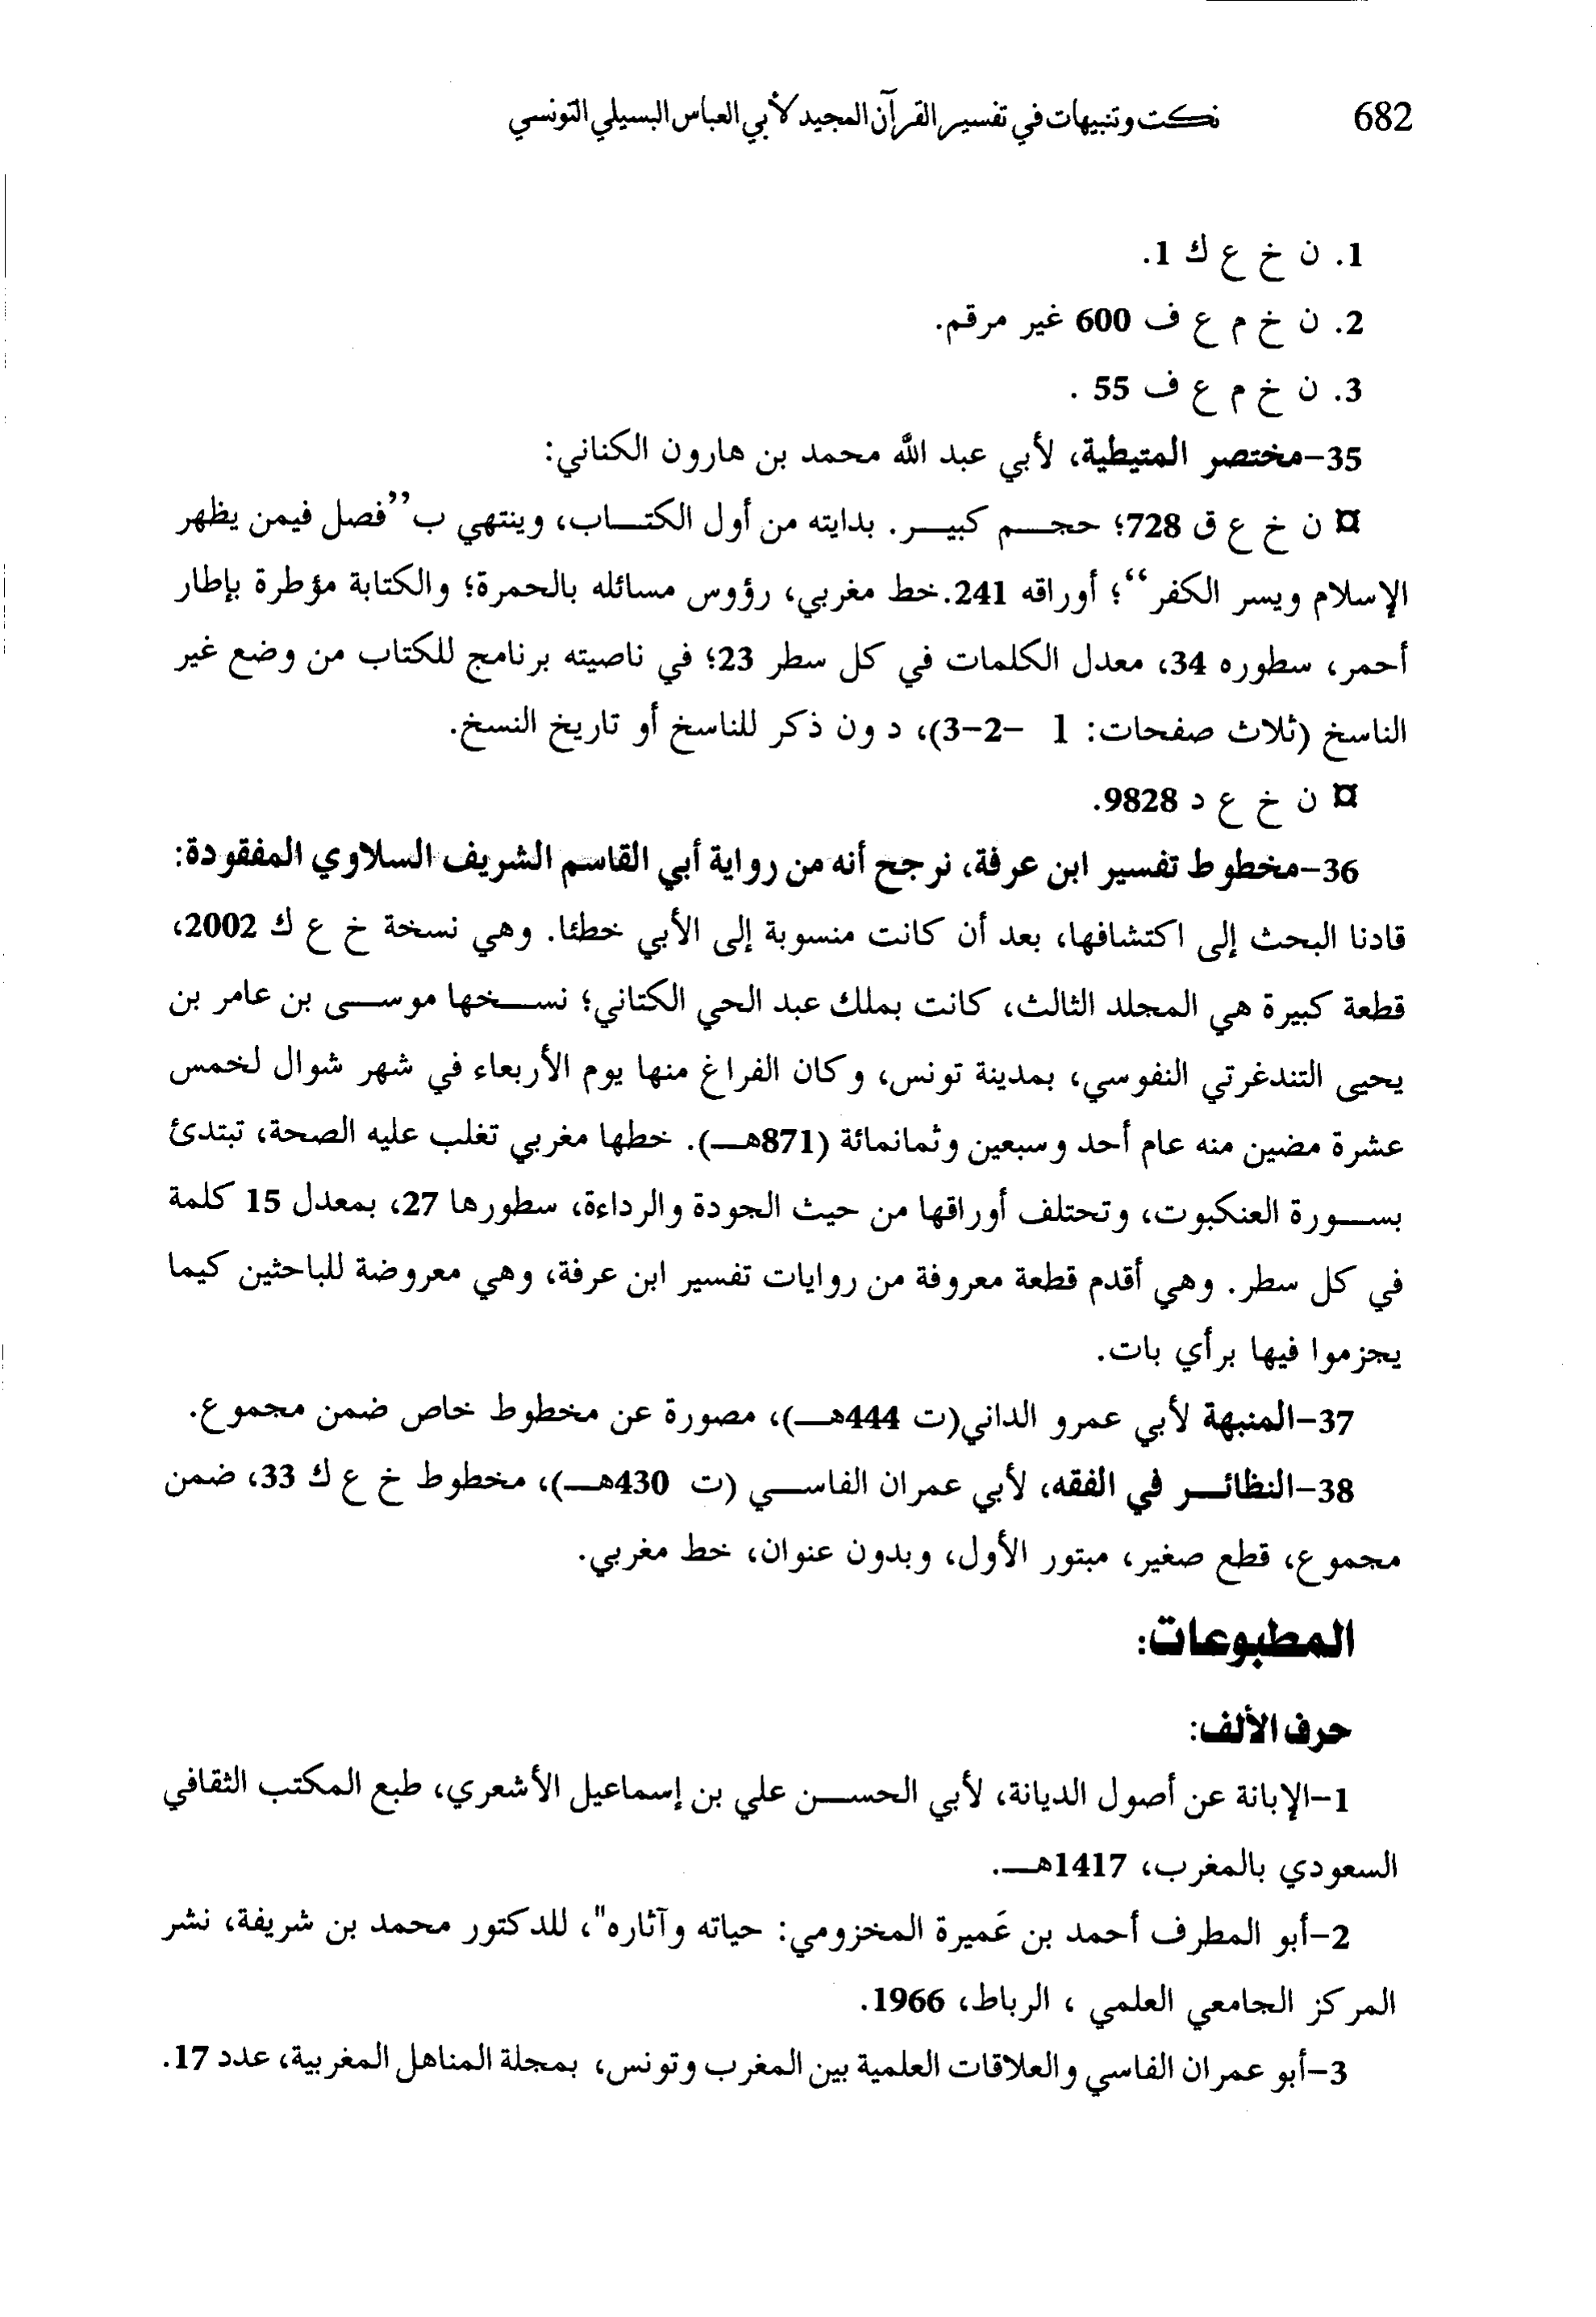 682 نكت وتنبيهات في تفسير القرآن المجيد لأبي العباس البسيلي التونسي
1. ن خ ع ك 1.
2. ن خ م ع ف 600 غير مرقم.
3. ن خ م ع ف 55 .
35-مختصر المتيطية، لأبي عبد الله محمد بن هارون الكناني:
¤ ن خ ع ق 728؛ حجـم كبيـر. بدايته من أول الكتـاب، وينتهي ب’’فصل فيمن يظهر
الإسلام ويسر الكفر‘‘؛ أوراقه 241.خط مغربي، رؤوس مسائله بالحمرة؛ والكتابة مؤطرة بإطار
أحمر، سطوره 34، معدل الكلمات في كل سطر 23؛ في ناصيته برنامج للكتاب من وضع غير
الناسخ (ثلاث صفحات: 1 -2-3)، دون ذكر للناسخ أو تاريخ النسخ.
¤ ن خ ع د 9828.
36-مخطوط تفسير ابن عرفة، نرجح أنه من رواية أبي القاسم الشريف السلاوي المفقودة:
قادنا البحث إلى اكتشافها، بعد أن كانت منسوبة إلى الأبي خطئا. وهي نسخة خ ع ك 2002،
قطعة كبيرة هي المجلد الثالث، كانت بملك عبد الحي الكتاني؛ نسـخها موسـى بن عامر بن
يحيى التندغرتي النفوسي، بمدينة تونس، وكان الفراغ منها يوم الأربعاء في شهر شوال لخمس
عشرة مضين منه عام أحد وسبعين وثمانمائة (871هـ). خطها مغربي تغلب عليه الصحة، تبتدئ
بسـورة العنكبوت، وتحتلف أوراقها من حيث الجودة والرداءة، سطورها 27، بمعدل 15 كلمة
في كل سطر. وهي أقدم قطعة معروفة من روايات تفسير ابن عرفة، وهي معروضة للباحثين كيما
يجزموا فيها برأي بات.
37-المنبهة لأبي عمرو الداني(ت 444هـ)، مصورة عن مخطوط خاص ضمن مجموع.
38-النظائـر في الفقه، لأبي عمران الفاسـي (ت 430هـ)، مخطوط خ ع ك 33، ضمن
مجموع، قطع صغير، مبتور الأول، وبدون عنوان، خط مغربي.
المطبوعات:
حرف الألف:
1-الإبانة عن أصول الديانة، لأبي الحسـن علي بن إسماعيل الأشعري، طبع المكتب الثقافي
السعودي بالمغرب، 1417هـ.
2-أبو المطرف أحمد بن عَميرة المخزومي: حياته وآثاره"، للدكتور محمد بن شريفة، نشر
المركز الجامعي العلمي ، الرباط، 1966.
3-أبو عمران الفاسي والعلاقات العلمية بين المغرب وتونس، بمجلة المناهل المغربية، عدد 17.